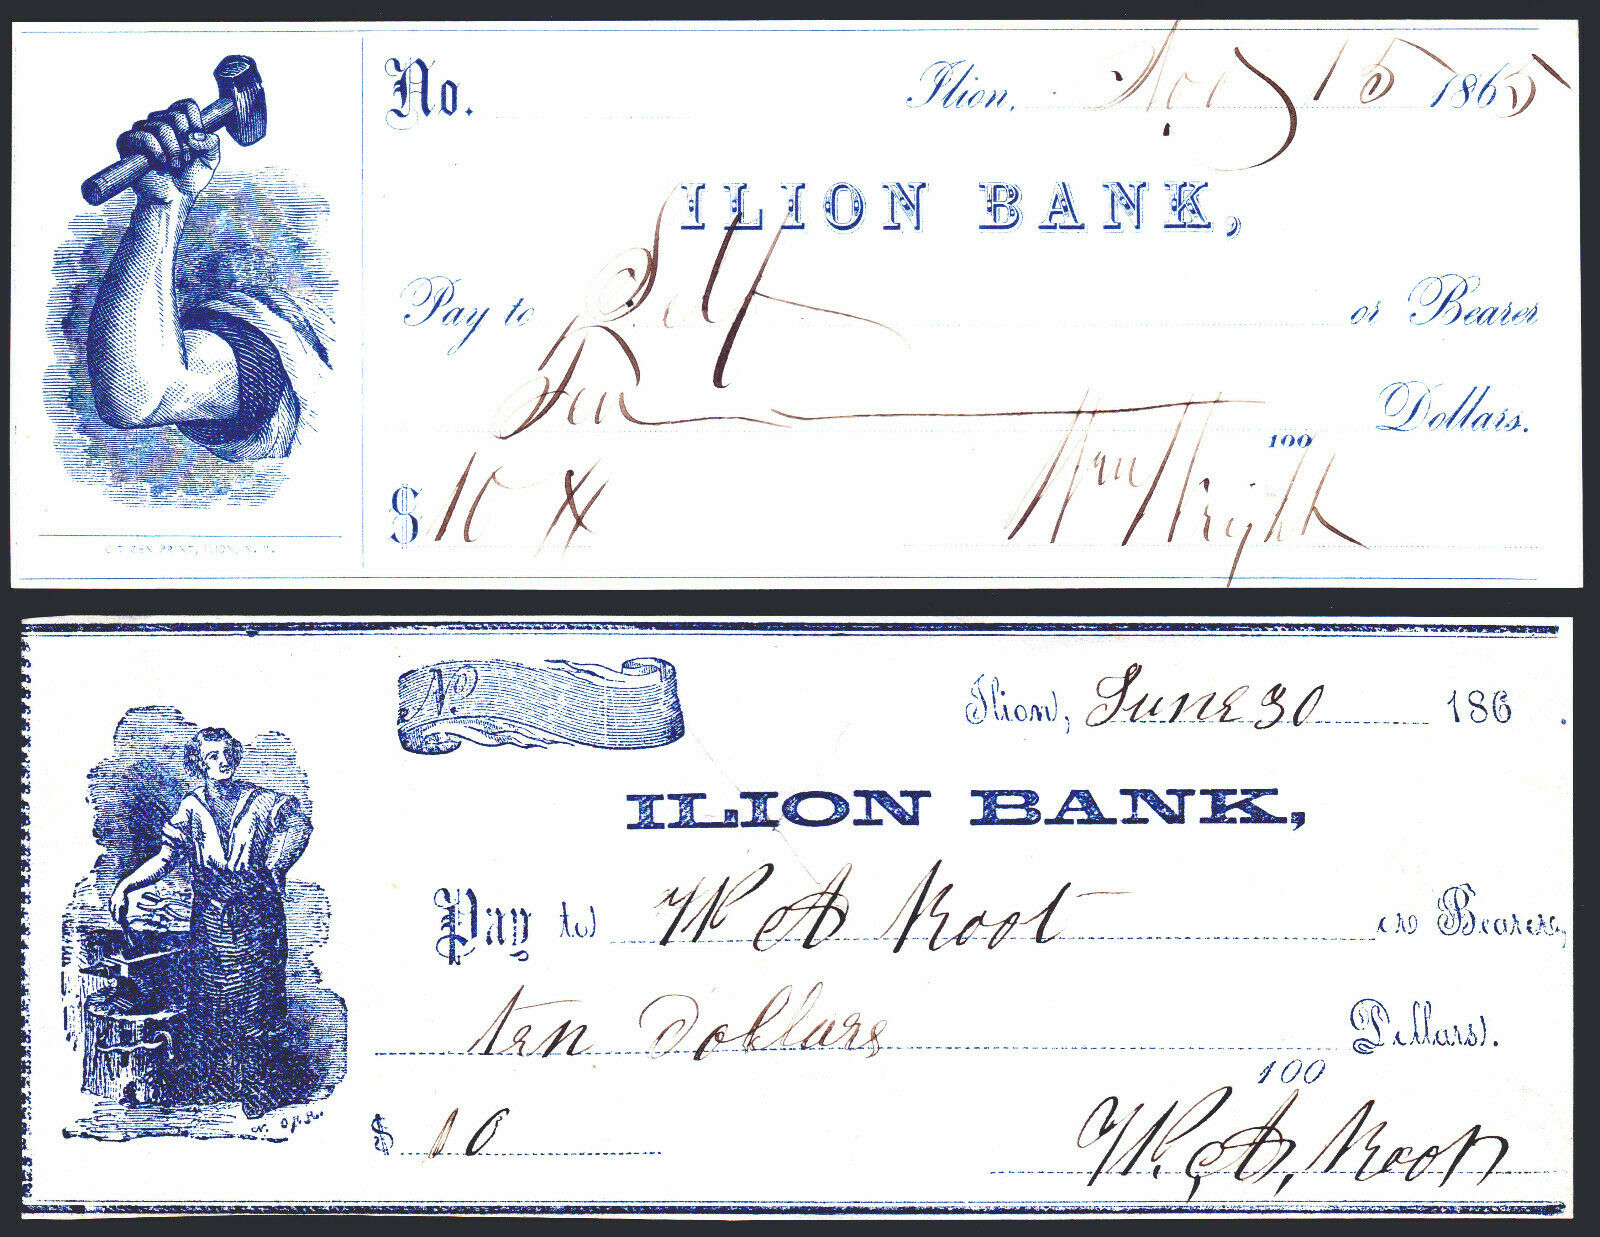 No. Ilion, Nov 15 1865
ILION BANK,
Pay to Self or Bearer
Ten Dollars.
100
$10 Wm Wright
CITIZEN PRINT, ILION, N. Y.
No. Ilion, June 30 186
ILION BANK,
Pay to W A Root or Bearer,
ten Dollars Dollars.
100
$10 W. A. Root